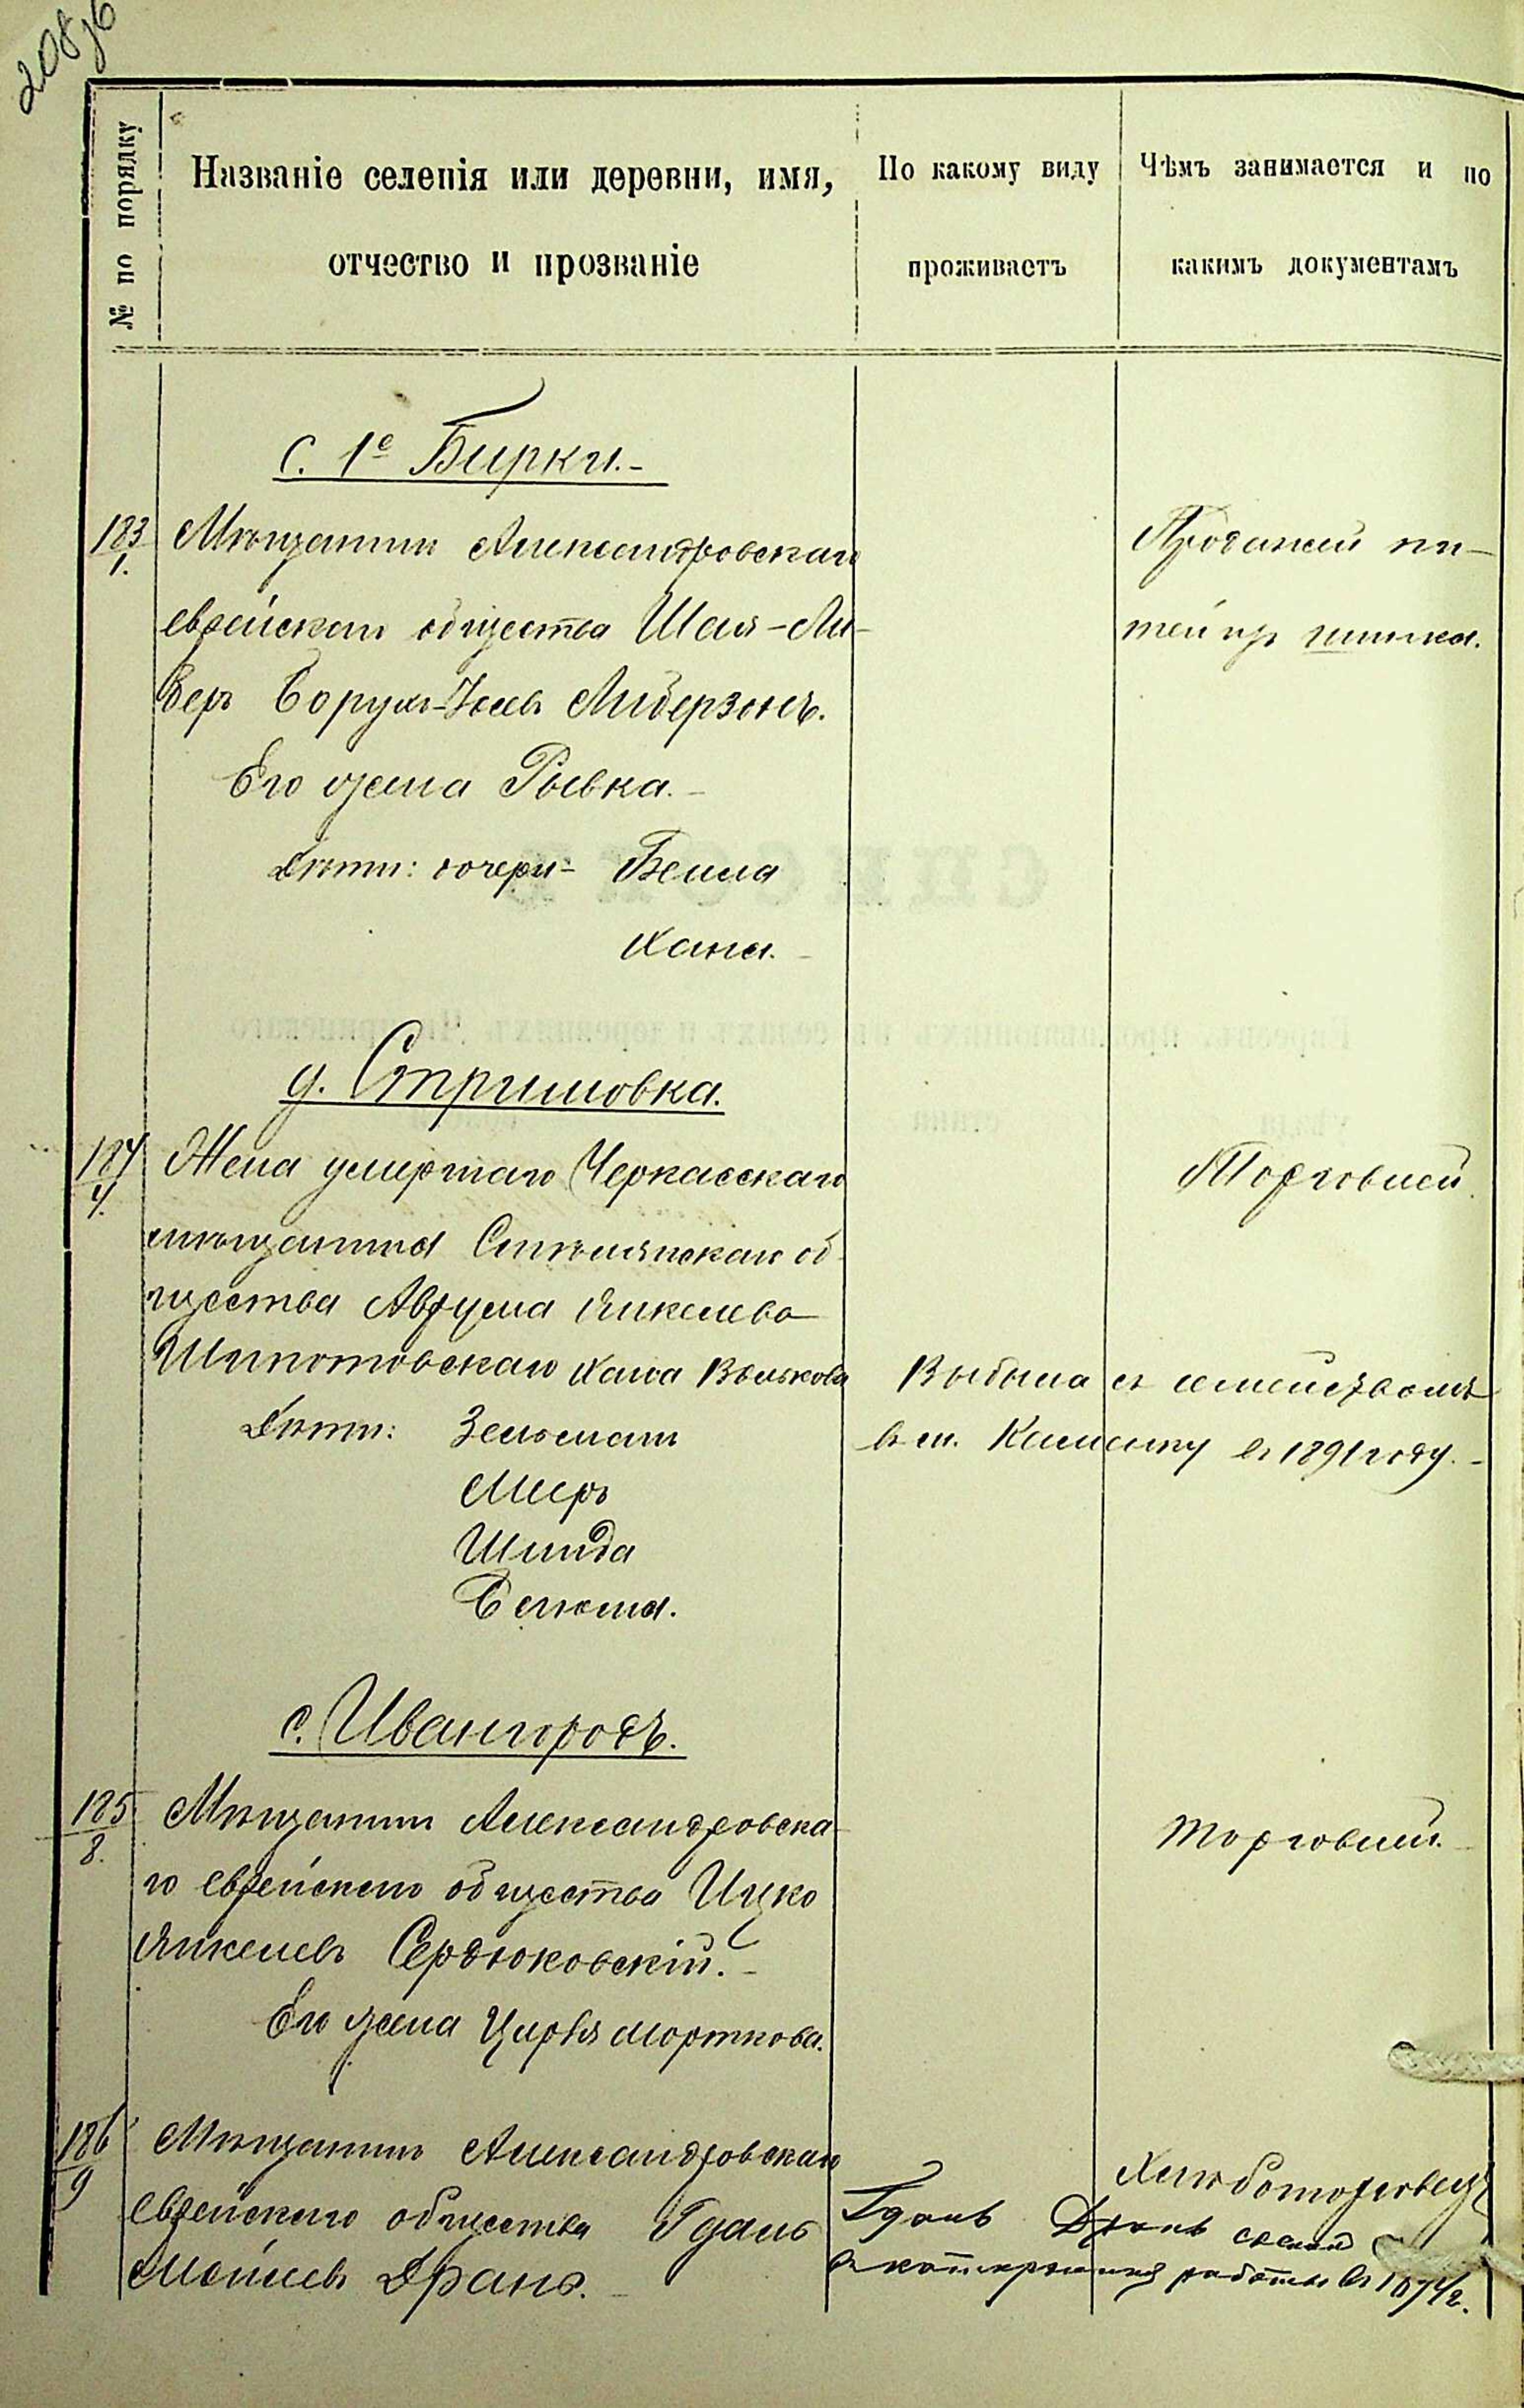 208 об
№ по порядку
Названіе селенія или деревни, имя,
отчество и прозваніе
По какому виду
проживаетъ
Чѣмъ занимается и по
какимъ документамъ
с. 1е Бирки.-
183
1.
Мѣщанинъ Александровскаго
еврейскаго общества Шая-Ли-
беръ Борухъ-Іосевъ Либерзонъ.
Его жена Рывка.-
Дѣти: дочери- Бейла
Хана.-
Продажей пи-
тей изъ шинка.
д. Стримовка.
184
4.
Жена умершаго Черкасскаго
мѣщанина Смѣлянскаго об-
щества Аврума Янкелева
Шполотовскаго Хана Волькова
Дѣти: Зельманъ
Меиръ
Шинда
Бейла.
Торговлей
Выбыла съ семействомъ
въ м. Каменку въ 1891 году.-
с. Ивангородъ.
185
8.
Мѣщанинъ Александровска-
го еврейскаго общества Ицко
Янкелевъ Сердюковскій.-
Его жена Цирля Морткова.
Торговлей.-
186
9
Мѣщанинъ Александровскаго
еврейскаго общества Гдаль
Мойшевъ Дранъ.-
Хлѣботорговецъ
Гдаль Дранъ сосланъ
въ каторжныя работы въ